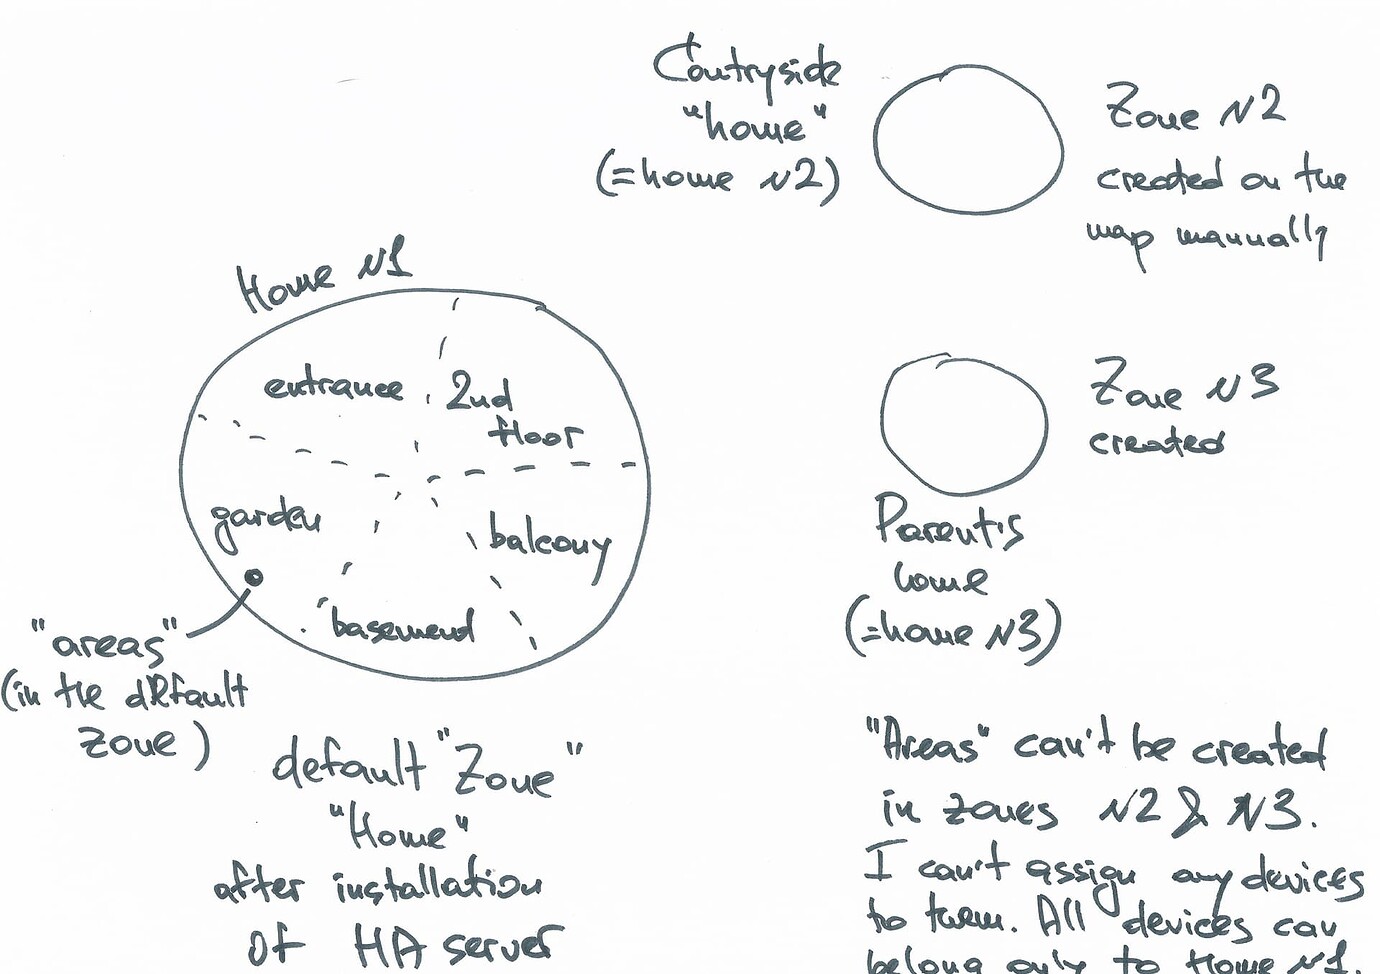 Coutryside
"home"
(=home N2)
Zone N2
created on the
map manually
Home N1
entrance
2nd
floor
garden
balcony
basemend
"areas"
(in the default
zone)
default "Zone"
"Home"
after installation
of HA server
Zone N3
created
Parent's
home
(=home N3)
"Areas" can't be created
in zones N2 & N3.
I can't assign any devices
to them. All devices can
belong only to Home N1.